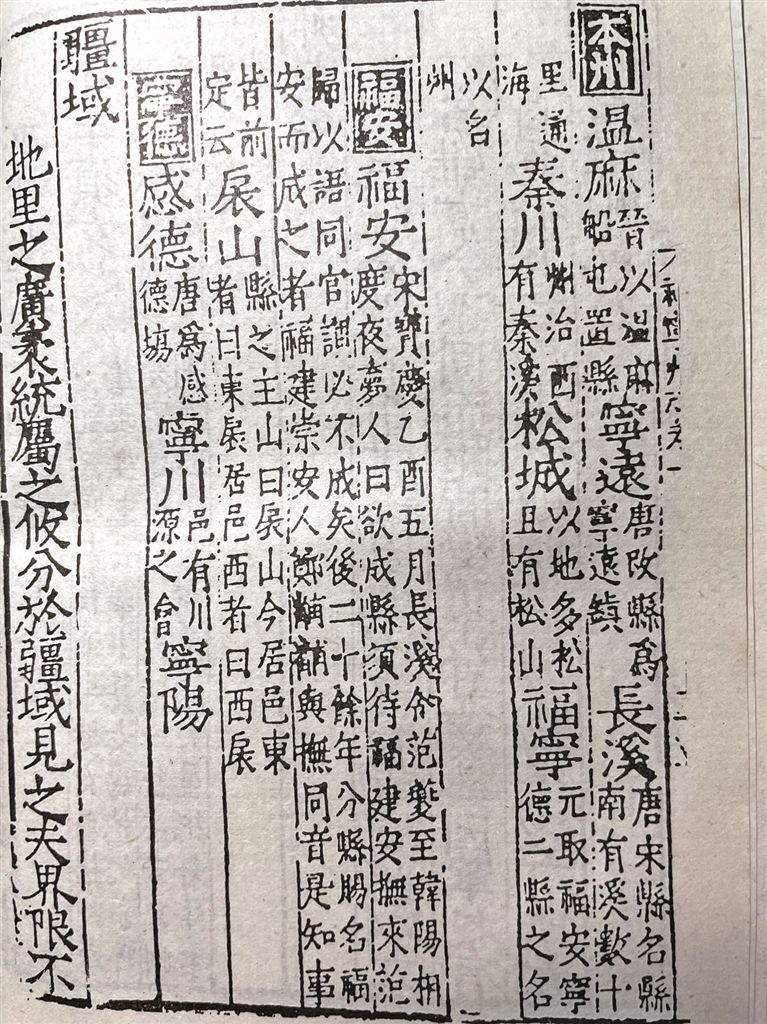 本州温麻晉以温麻船屯置縣寧遠唐改縣爲寧遠鎮長溪唐宋縣名縣南有溪數十
里通海秦川州治西有秦溪松城以地多松且有松山福寧元取福安寧德二縣之名
以名州
福安福安宋寶慶乙酉五月長溪令范夔至韓陽相度夜夢人曰欲成縣須待福建安撫來范
歸以語同官謂必不成矣後二十餘年分縣賜名福安而成之者福建崇安人鄭黼黼與撫同音是知事
皆前定云扆山縣之主山曰扆山今居邑東者曰東扆居邑西者曰西扆
寧德感德唐爲感德場寧川邑有川源之會寧陽
疆域
地里之廣袤統屬之攸分於疆域見之夫界限不